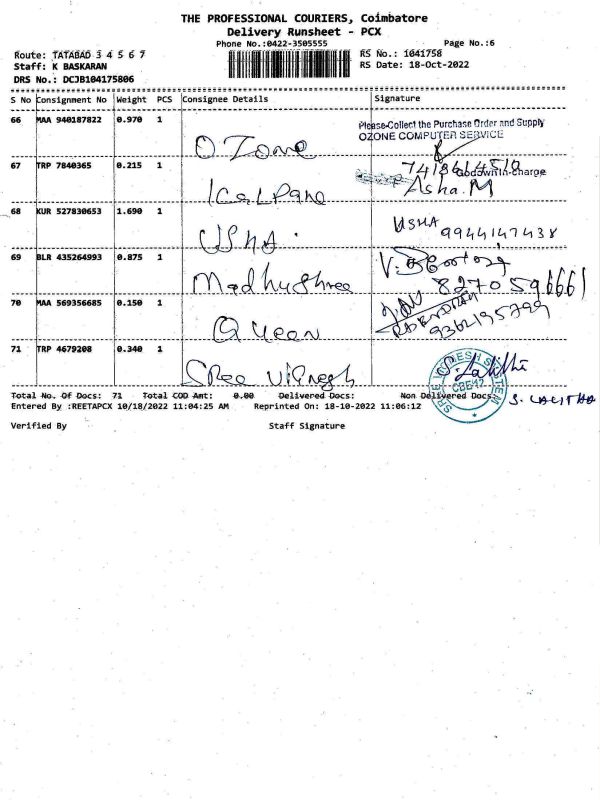 THE PROFESSIONAL COURIERS, Coimbatore
Delivery Runsheet - PCX
Phone No.:0422-3505555 Page No.:6
Route: TATABAD 3 4 5 6 7 RS No.: 1041758
Staff: K BASKARAN RS Date: 18-Oct-2022
DRS No.: DCJB104175806
S No Consignment No Weight PCS Consignee Details Signature
66 MAA 940187822 0.970 1 O Zone Please Collect the Purchase Order and Supply
OZONE COMPUTER SERVICE
Godown In-charge
67 TRP 7840365 0.215 1 Asha.M
68 KUR 527830653 1.690 1 USHA USHA
9944147438
69 BLR 435264993 0.875 1 Madhushree
8270596661
70 MAA 569356685 0.150 1 Queen
9362195799
71 TRP 4679208 0.340 1 Sree Vignesh
Total No. Of Docs: 71 Total COD Amt: 0.00 Delivered Docs: Non Delivered Docs:
S. LALITHA
Entered By :REETAPCX 10/18/2022 11:04:25 AM Reprinted On: 18-10-2022 11:06:12
Verified By Staff Signature